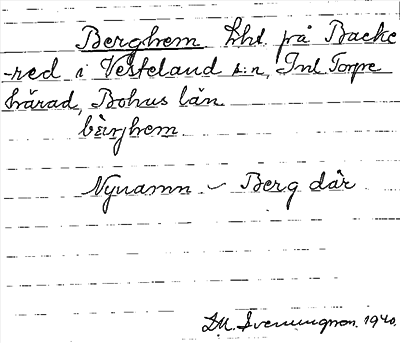 Berghem lht. på Backe
-red i Vesteland s:n, Inl. Torpe
härad, Bohus län.
bèrghem
Nynamn ~ Berg där
D.A. Svenungsson. 1940.